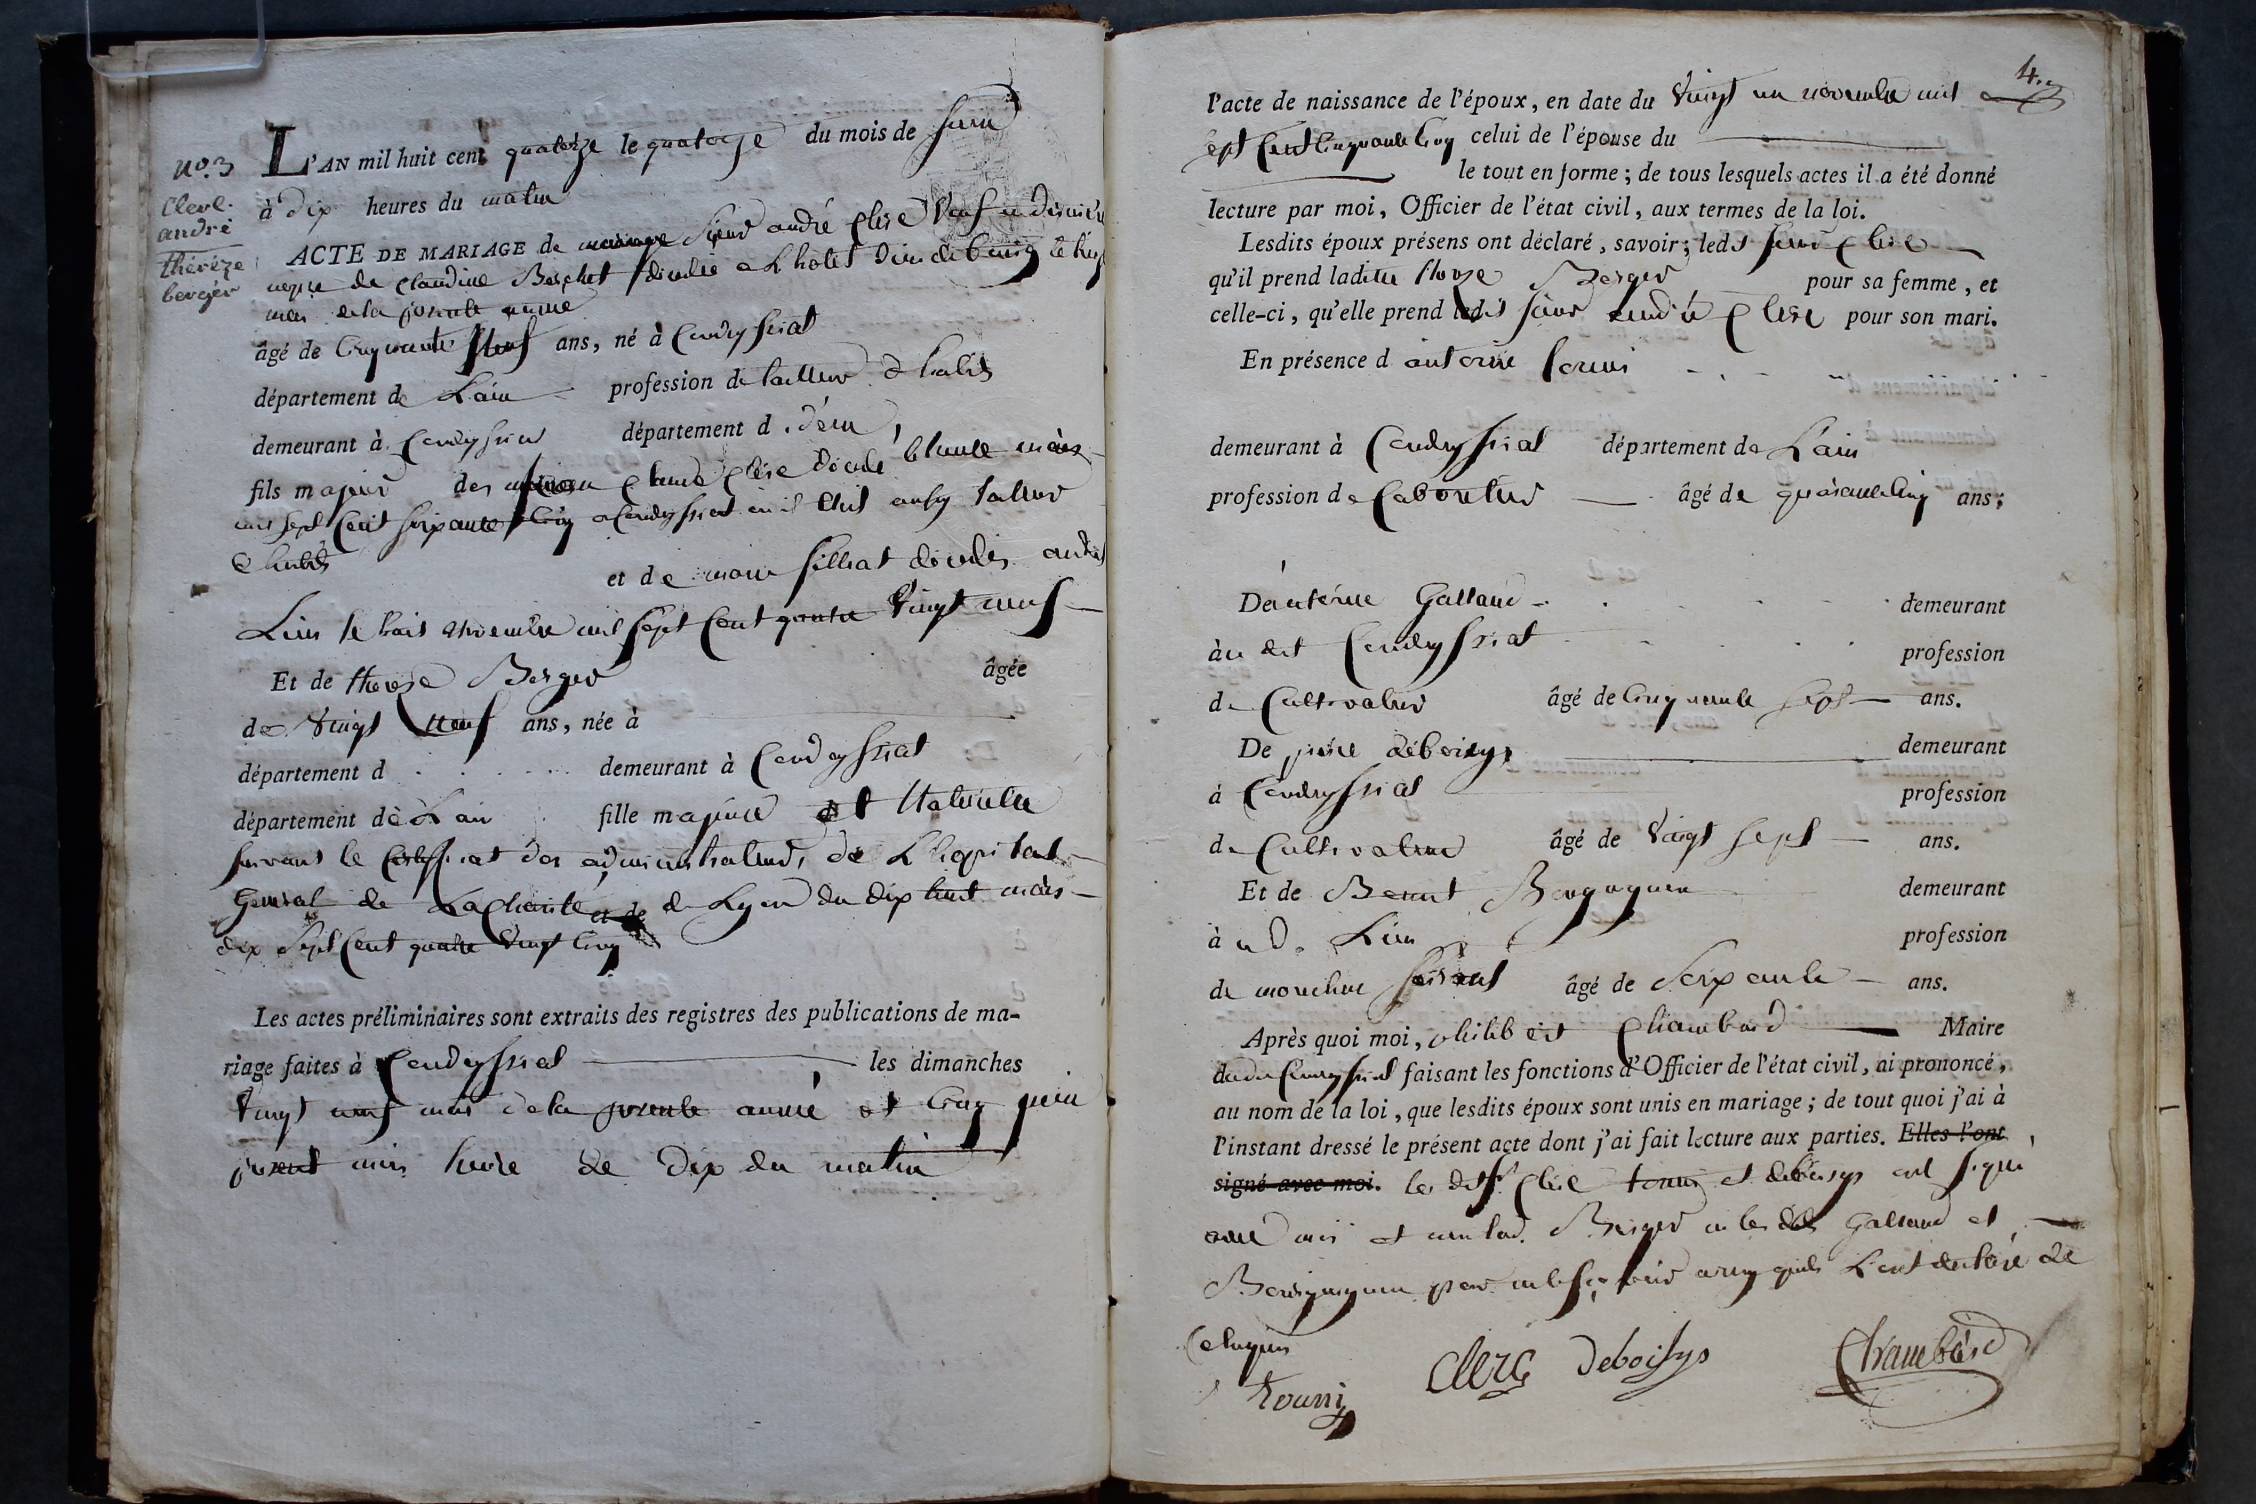 no. 3
Clerc.
andré
thérèze
berger
L'AN mil huit cent quatorze le quatorze du mois de juin
à dix heures du matin
ACTE DE MARIAGE de sieur andré Clerc veuf en dernière
de Claudine décédée a L'hotel Dieu de bourg le
mars de la présente année
âgé de Cinquante Neuf ans, né à Condeyssiat
département de L'ain profession de tailleur d'habits
demeurant à Condeyssiat département d. dém
fils majeur des Claude Clerc décédé le trente mars
mil sept Cent soixante Cinq a Condeyssiat où il étoit aussy tailleur
d'habits
et de marie silliat décédée audit
Lieu le trois novembre mil sept Cent quatre Vingt neuf
Et de therese Berger âgée
de Vingt Neuf ans, née à
département d demeurant à Condeyssiat
département de L'ain fille majeure et Naturelle
suivant le Certificat des administrateurs de L'hopital
General de La Charité de Lyon du dix huit mars
dix sept Cent quatre Vingt Cinq
Les actes préliminaires sont extraits des registres des publications de ma-
riage faites à Condeyssiat les dimanches
Vingt neuf mai de la présente année et Cinq juin
présent mois heure de dix du matin
4.
l'acte de naissance de l'époux, en date du Vingt un novembre mil
sept Cent Cinquante Cinq celui de l'épouse du
le tout en forme; de tous lesquels actes il a été donné
lecture par moi, Officier de l'état civil, aux termes de la loi.
Lesdits époux présens ont déclaré, savoir; ledit sieur Clerc
qu'il prend ladite therese Berger pour sa femme, et
celle-ci, qu'elle prend ledit sieur andré Clerc pour son mari.
En présence d antoine
demeurant à Condeyssiat département de L'ain
profession de Cabartier âgé de quarante Cinq ans;
D'antoine Galland demeurant
àu dit Condeyssiat profession
de Cultivateur âgé de Cinquante sept ans.
De pierre déboisys demeurant
à Condeyssiat profession
de Cultivateur âgé de Vingt sept ans.
Et de Benoit demeurant
àu d. Lieu profession
de âgé de Soixante ans.
Après quoi moi, philibert Chambard Maire
dudit Condeyssiat faisant les fonctions d'Officier de l'état civil, ai prononcé,
au nom de la loi, que lesdits époux sont unis en mariage; de tout quoi j'ai à
l'instant dressé le présent acte dont j'ai fait lecture aux parties. Elles l'ont
signé avec moi. les dits Clerc et deboisys ont signé
avec moi et non lad. Berger ni les dits Galland et
pour ne le sçavoir ainsy quils L'ont déclaré de
Ce Requis
Clerc Deboisys Chambard